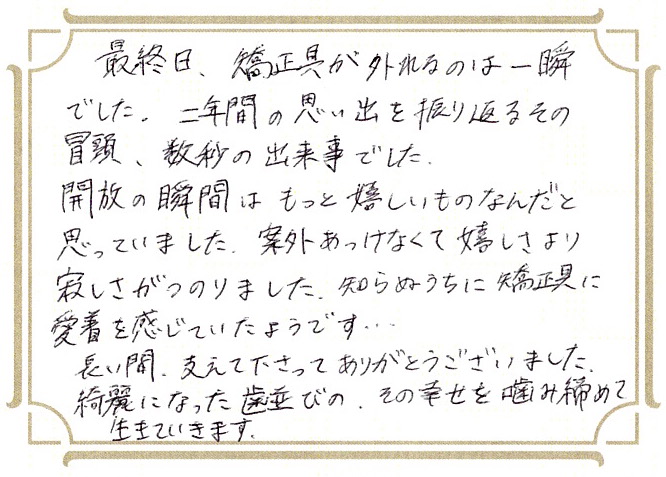 最終日、矯正具が外れるのは一瞬
でした。二年間の思い出を振り返るその
冒頭、数秒の出来事でした。
開放の瞬間はもっと嬉しいものなんだと
思っていました。案外あっけなくて嬉しさより
寂しさがつのりました。知らぬうちに矯正具に
愛着を感じていたようです…
長い間、支えて下さってありがとうございました。
綺麗になった歯並びの、その幸せを噛み締めて
生きていきます。